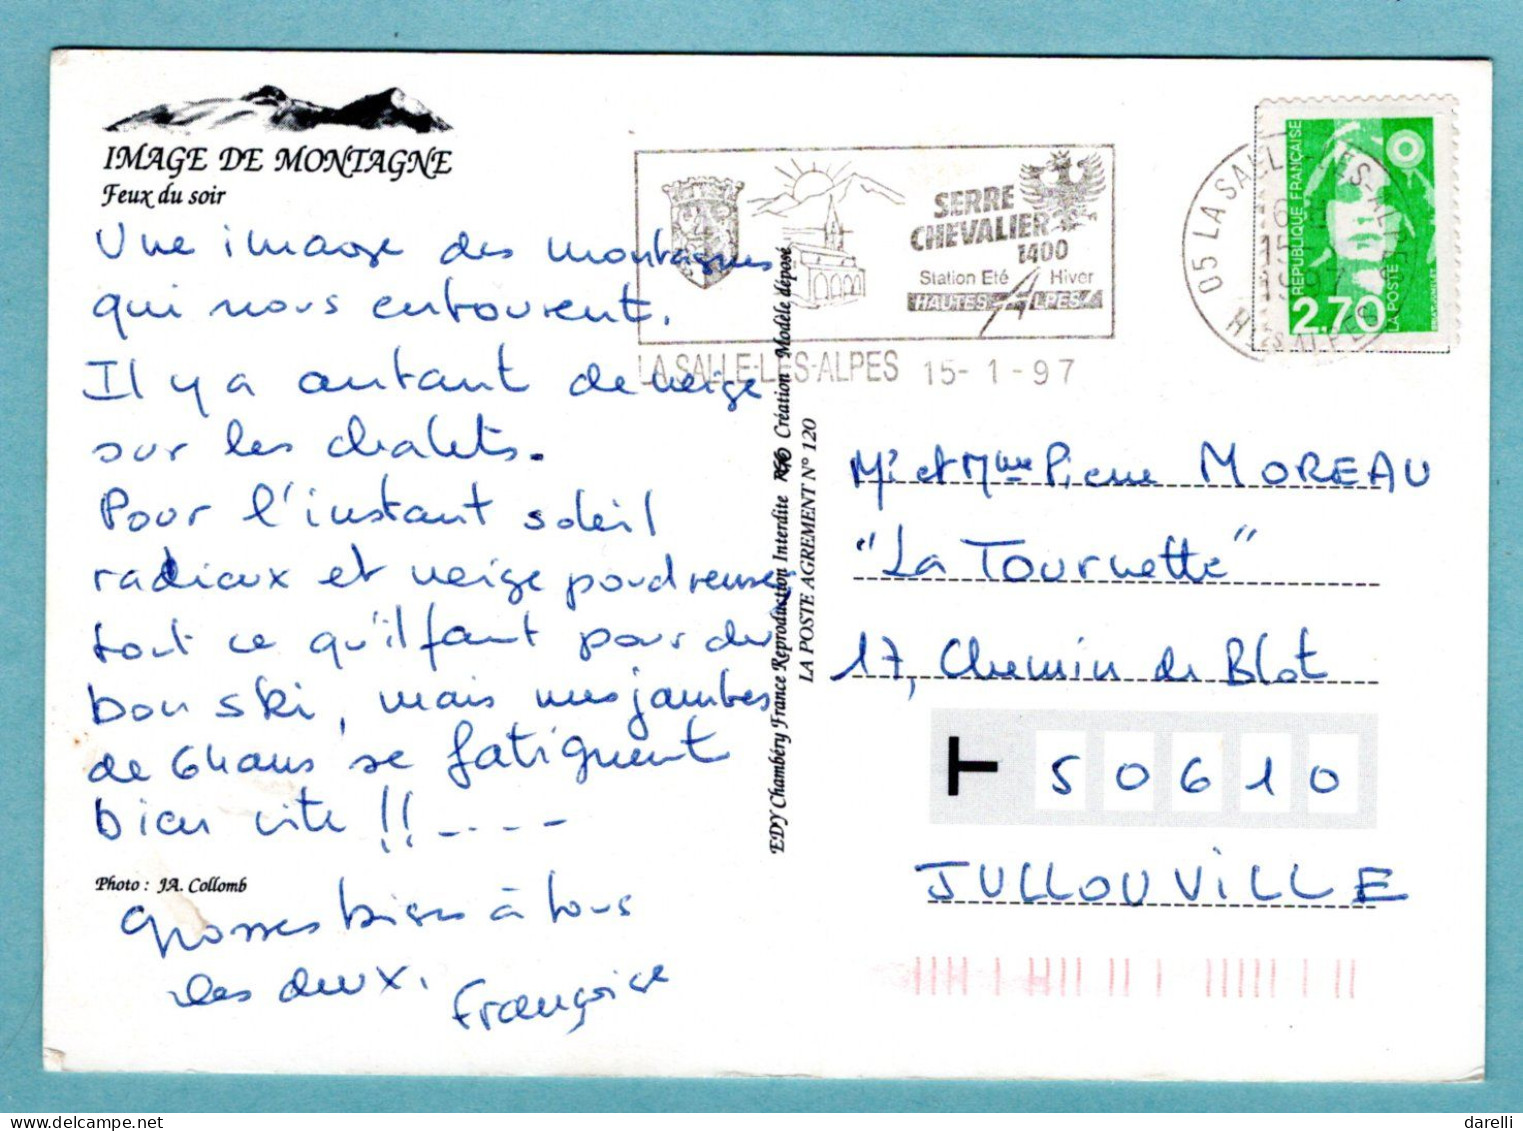 IMAGE DE MONTAGNE
Feux du soir
Une image des montagnes
qui nous entourent.
Il y a autant de neige
sur les chalets.
Pour l'instant soleil
radieux et neige poudreuse,
tout ce qu'il faut pour du
bon ski, mais mes jambes
de 64 ans se fatiguent
bien vite !! ----
Photo : JA. Collomb
Grosses bises à tous
les deux.
Françoise
EDY Chambéry France Reproduction Interdite Création Modèle déposé
LA POSTE AGREMENT N° 120
SERRE
CHEVALIER
1400
Station Eté Hiver
HAUTES ALPES
LA SALLE-LES-ALPES 15-1-97
05 LA SALLE-LES-ALPES
15-1
1997
Htes ALPES
REPUBLIQUE FRANÇAISE
2,70
LA POSTE
Mr et Mme Pierre MOREAU
"La Tournette"
17, Chemin de Blot
50610
JULLOUVILLE
darelli